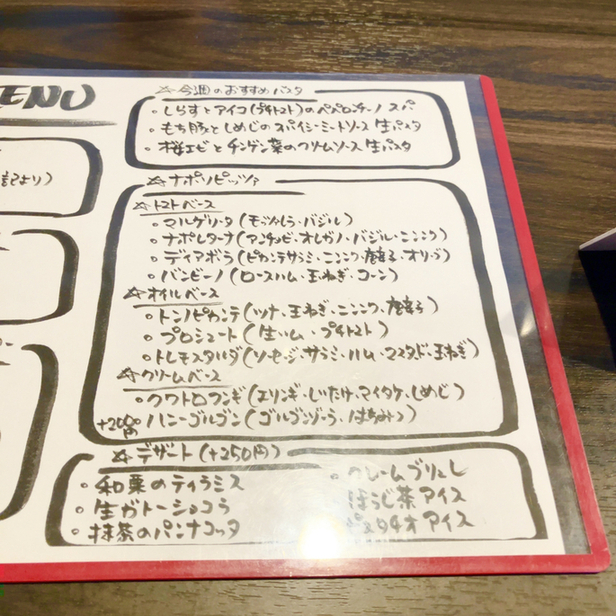 ENU
記より)
☆今週のおすすめパスタ
・しらすとアイコ(プチトマト)のペペロンチーノ スパ
・もち豚としめじのスパイシーミートソース 生パスタ
・桜エビとチンゲン菜のクリームソース 生パスタ
☆ナポリピッツァ
☆トマトベース
・マルゲリータ(モッツァレラ・バジル)
・ナポレターナ(アンチョビ・オレガノ・バジル・ニンニク)
・ディアボラ(ピカンテサラミ・ニンニク・唐辛子・オリーブ)
・バンビーノ(ロースハム・玉ねぎ・コーン)
☆オイルベース
・トンノピカンテ(ツナ・玉ねぎ・ニンニク・唐辛子)
・プロシュート(生ハム・プチトマト)
・トレモスタルダ(ソーセージ・サラミ・ハム・マスタード・玉ねぎ)
☆クリームベース
・クワトロフンギ(エリンギ・しいたけ・マイタケ・しめじ)
+200円 ハニーゴルゴン(ゴルゴンゾーラ・はちみつ)
☆デザート(+250円)
・和栗のティラミス
・生ガトーショコラ
・抹茶のパンナコッタ
・クレームブリュレ
ほうじ茶アイス
ピスタチオアイス